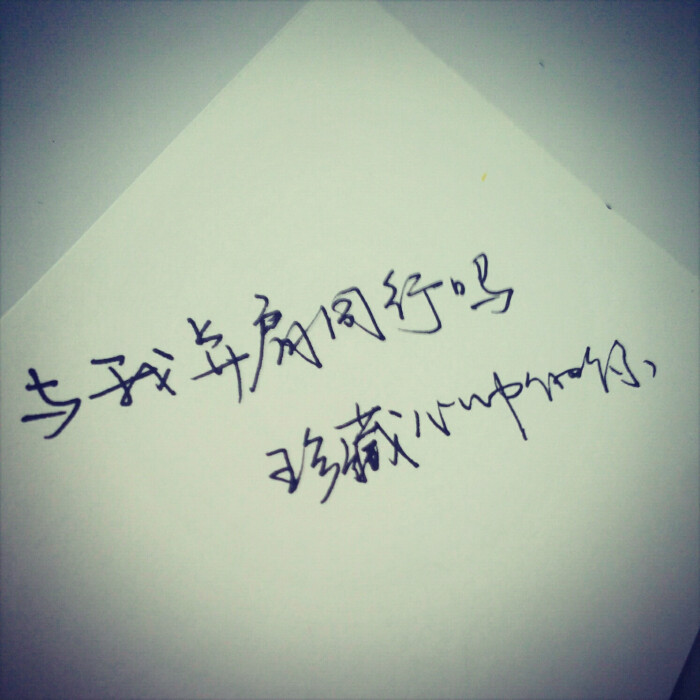 与我并肩同行吗
珍藏心中的你、